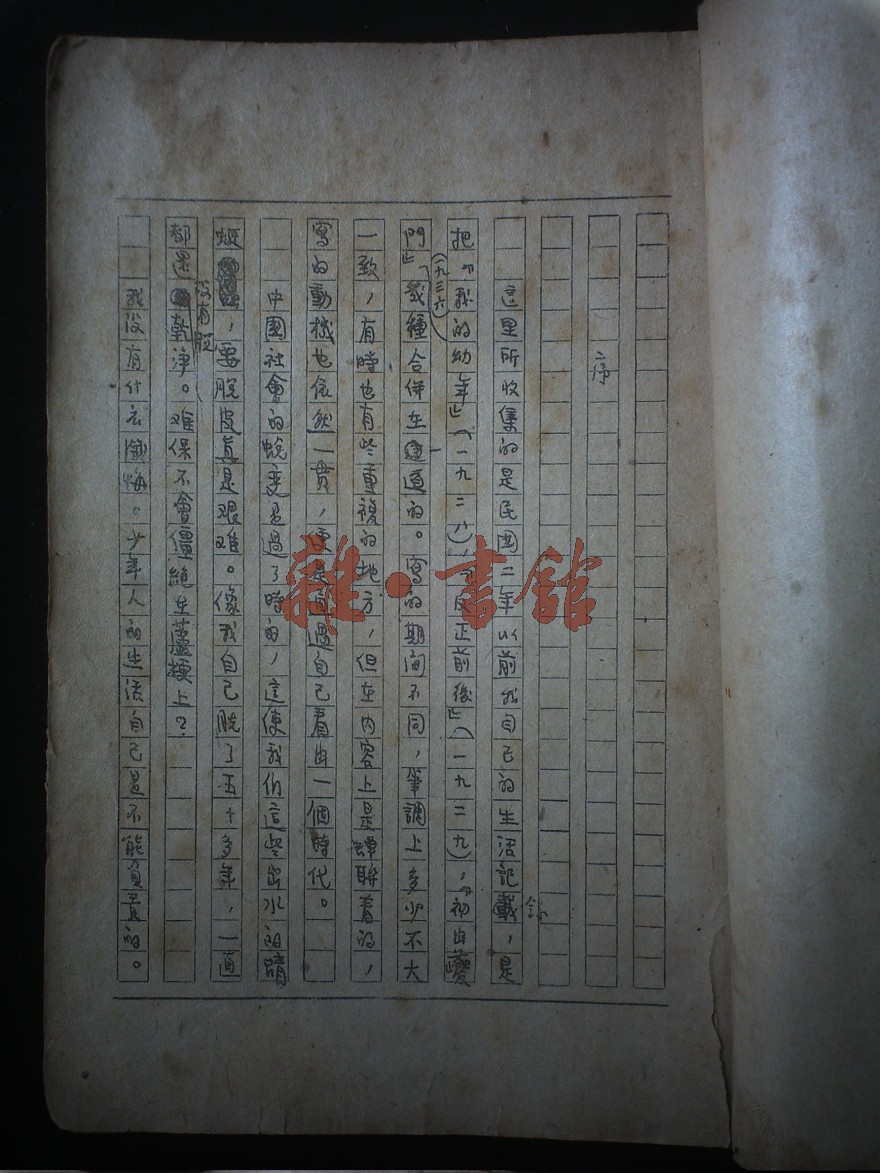 序
這里所收集的是民國二年以前我自己的生活記載，是
把『我的幼年』（一九二八）、『反正前後』（一九二九），『初出夔
門』（一九三六）幾種合併在一道的。寫的期间不同，筆調上多少不大
一致，有時也有些重複的地方，但在內容上是蟬聨着的，
寫的動機也依然一貫，便是通過自己看出一個時代。
中國社會的蛻變是過了時的，這使我们這些出水的蜻
蜓，要脫皮真是艰难。像我自己脫了五十多年，一直
都还沒有脫乾净。难保不會僵絕在蘆梗上？
我沒有什么懺悔。少年人的生活自己是不能負責的。
雜·書館